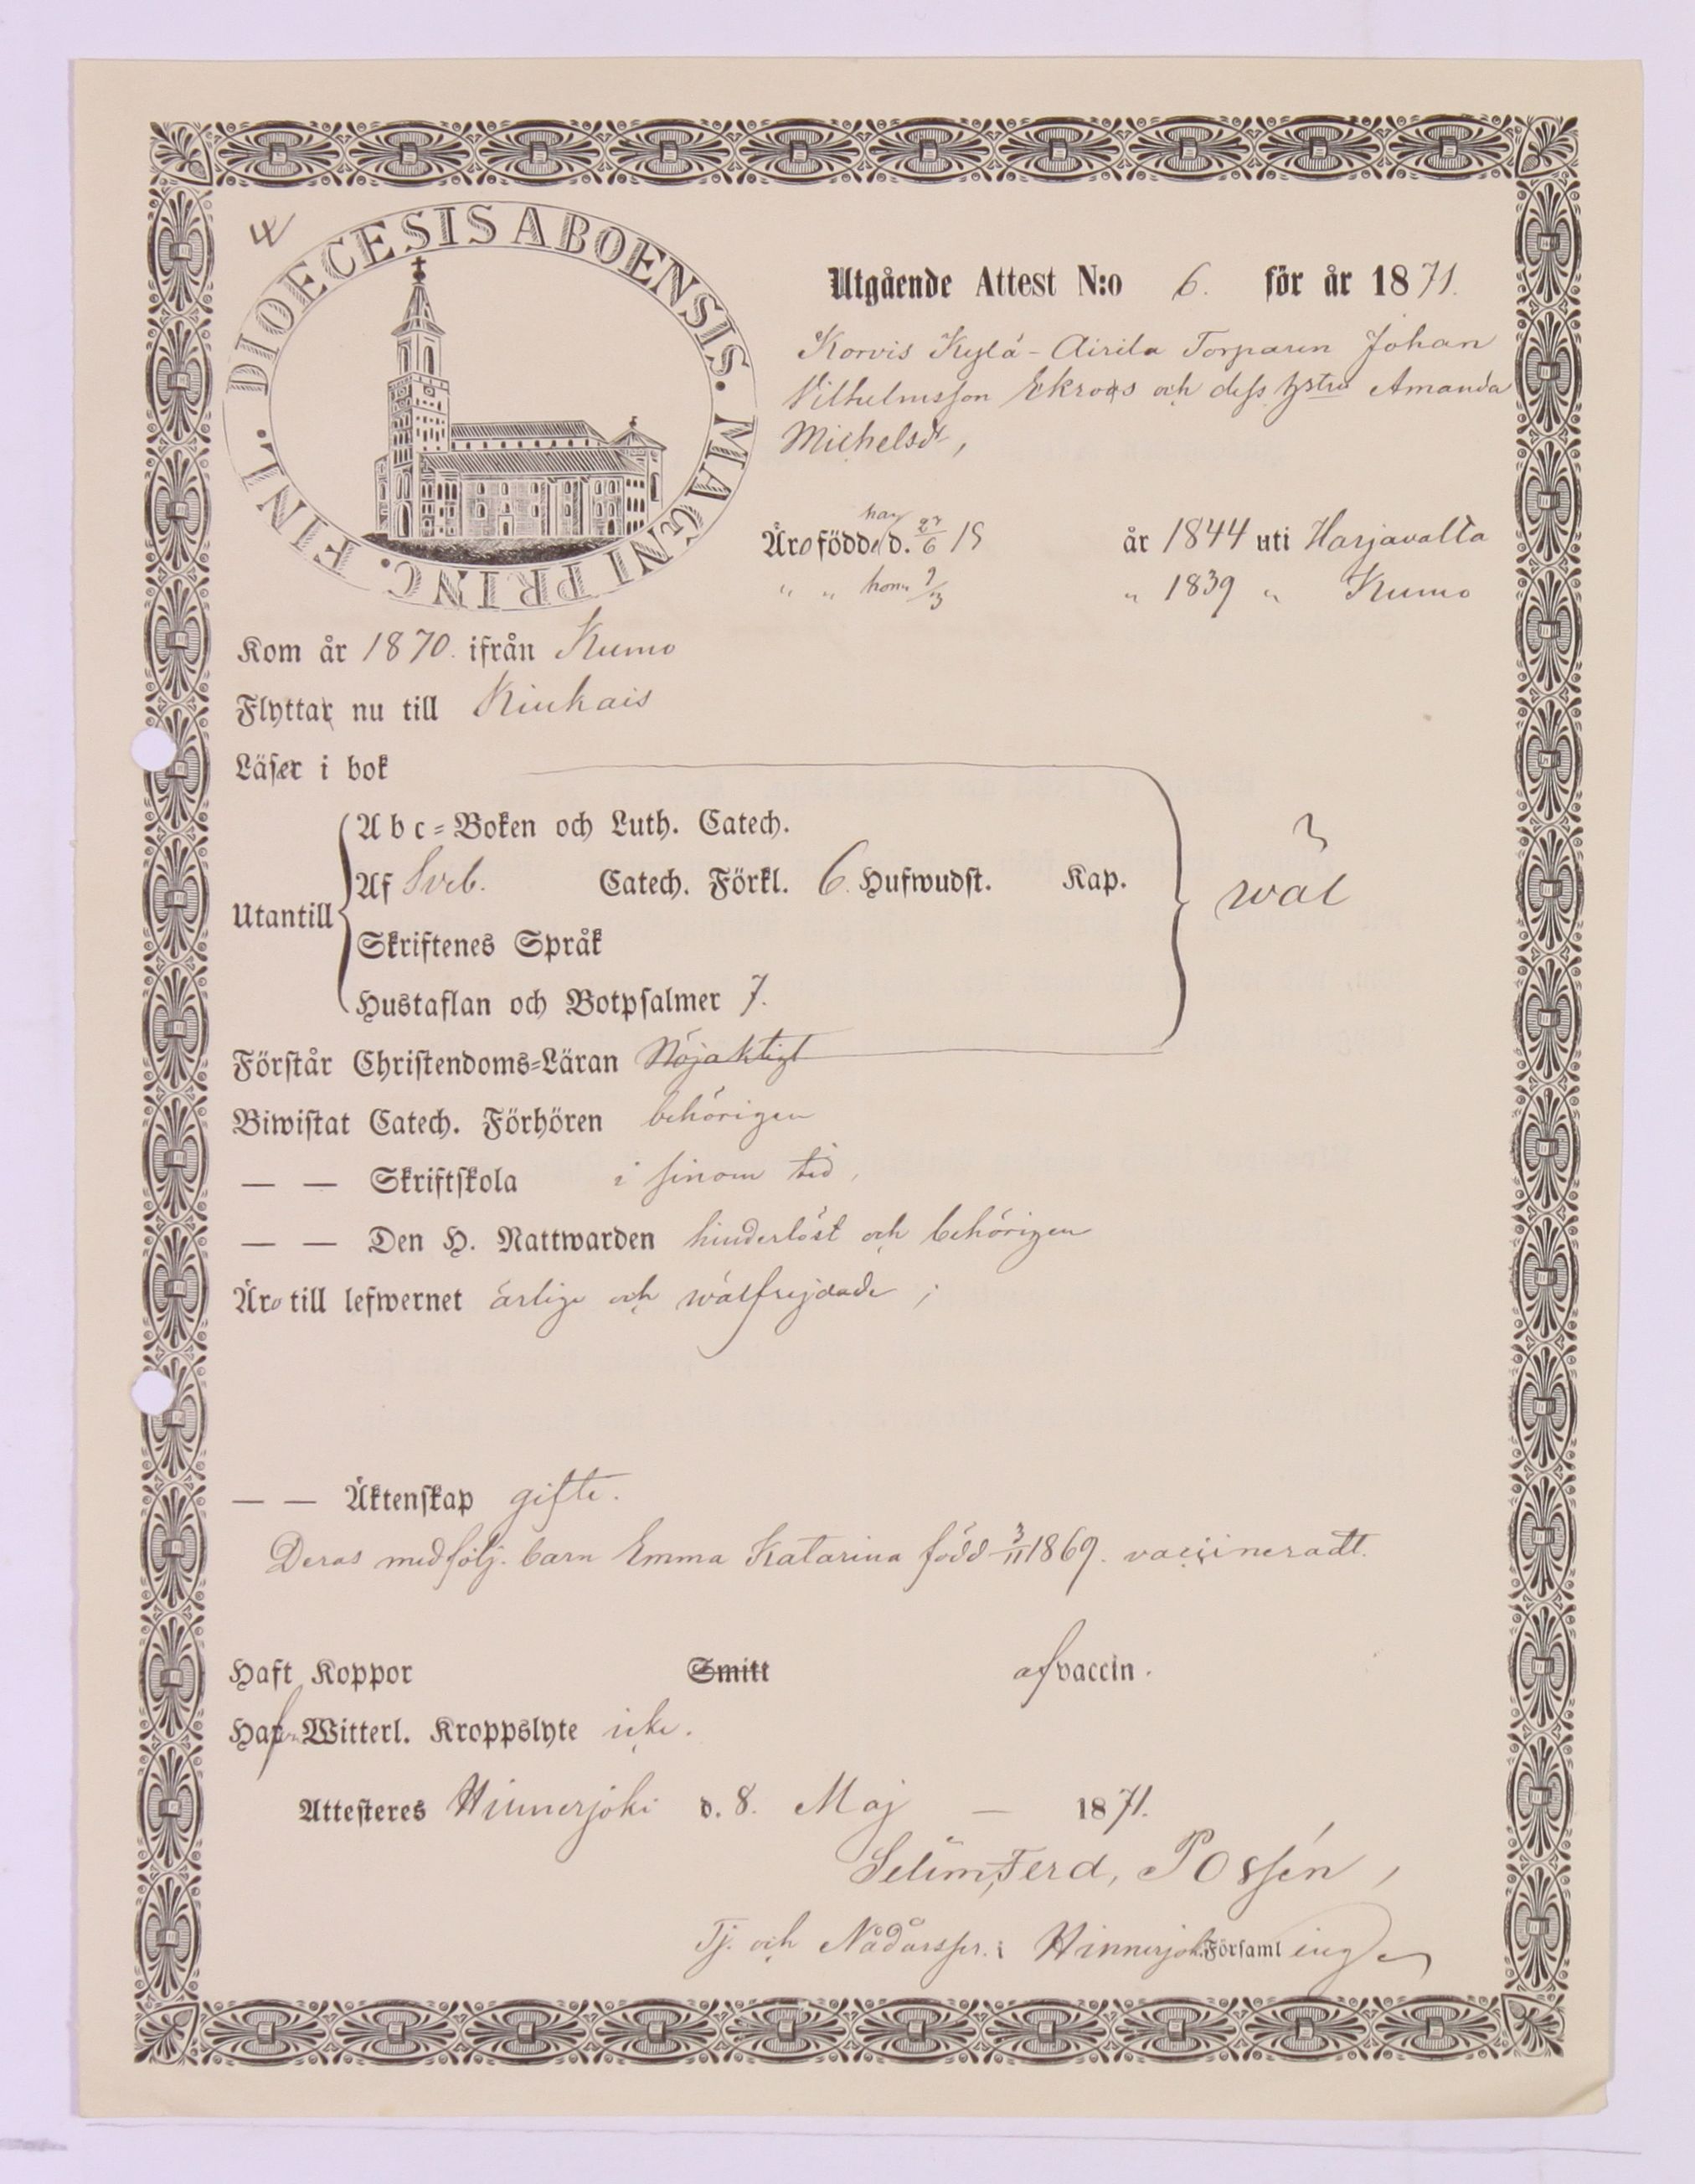 4
DIOECESIS ABOENSIS. MAGNI PRINC. FINL.
Utgående Attest N:o 6. för år 1871.
Korvis Kylä-Airila Torparen Johan
Vilhelmsson Ekroos och dess hstru Amanda
Michelsdr,
han
Äro födde d. 27/6 år 1844 uti Harjavalta
" " hon 9/3 " 1839 " Kumo
Kom år 1870. ifrån Kumo
Flyttar nu till Kiukais
Läser i bok
Abc-Boken och Luth. Catech.
Utantill Af Sveb. Catech. Förkl. 6. Hufwudst. Kap. wäl
Skriftenes Språk
Hustaflan och Botpsalmer 7.
Förstår Christendoms-Läran Nöjaktigt
Biwistat Catech. Förhören behörigen
— — Skriftskola i sinom tid,
— — Den H. Nattwarden hinderlöst och behörigen
Äro till lefwernet ärlige och wälfrejdade;
— — Äktenskap gifte.
Deras medfölj. barn Emma Katarina född 3/11 1869. vaccineradt.
Haft Koppor Smitt af vaccin.
Hafva Witterl. Kroppslyte icke.
Attesteres Hinnerjoki d. 8. Maj — 1871.
Selim Ferd, Possén,
Tj. och Nådårspr. i Hinnerjoki Församling